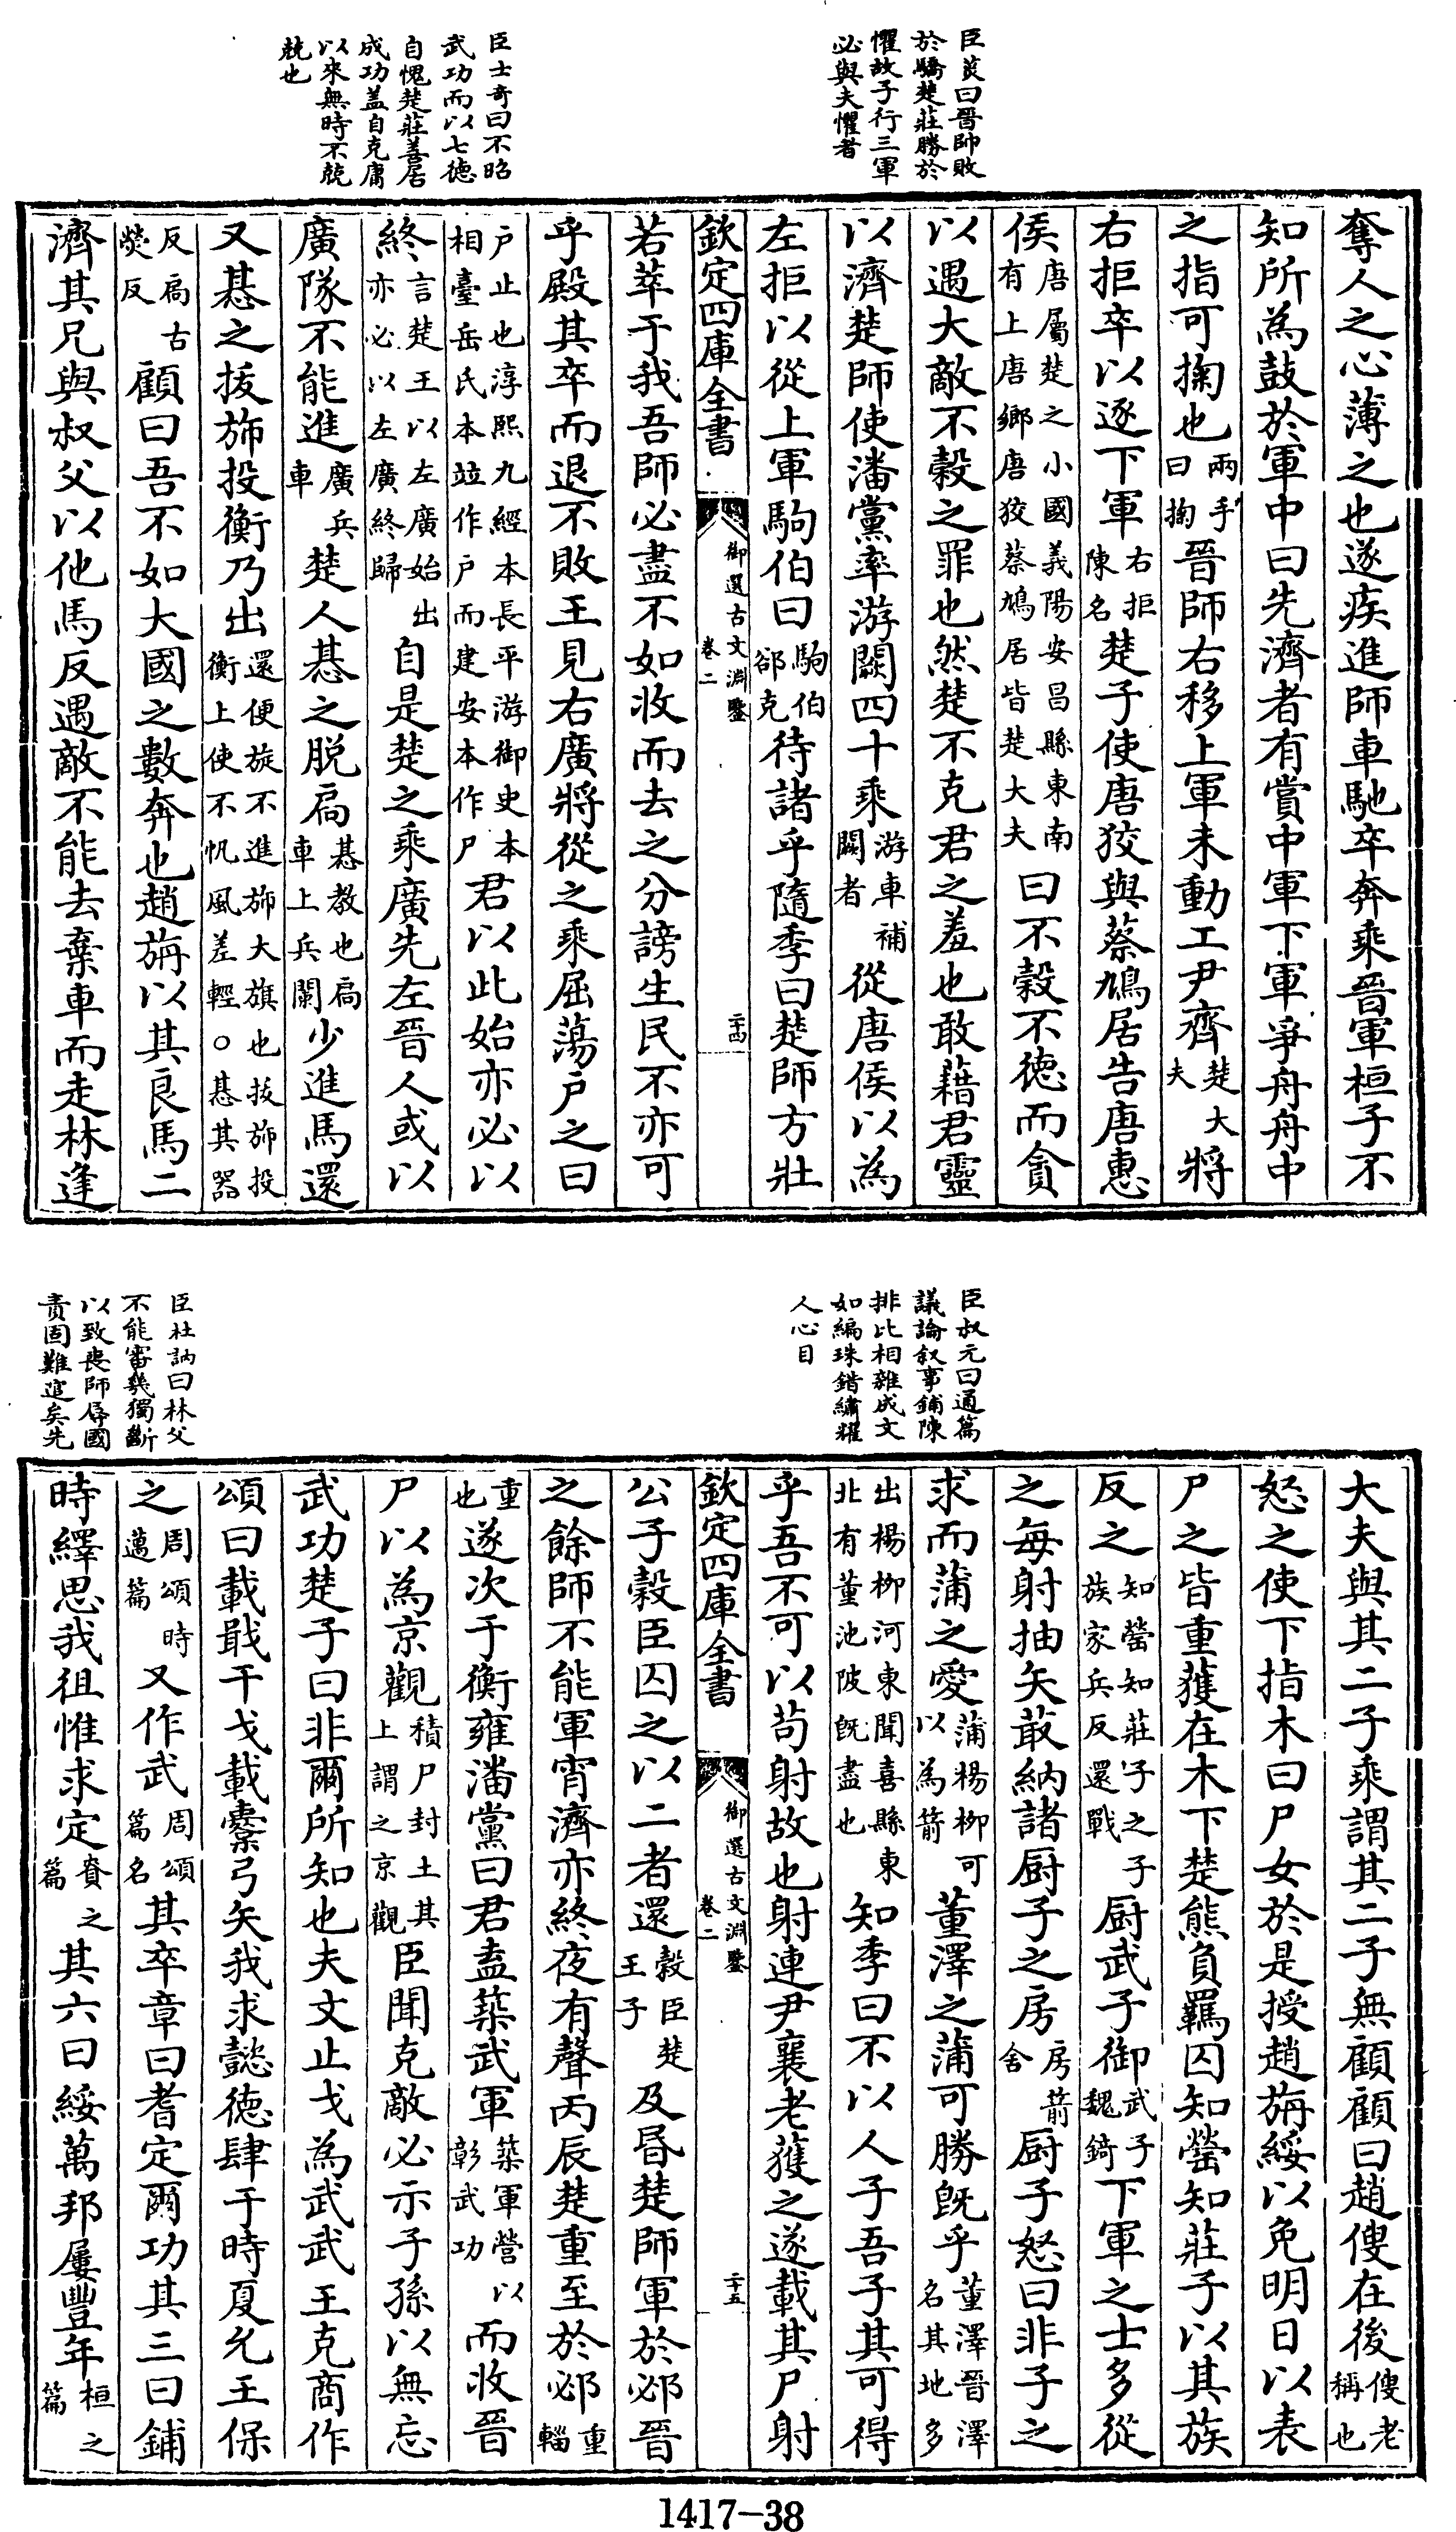 臣英曰晉師敗
於驕楚莊勝於
懼故子行三軍
必與夫懼者
臣士奇曰不昭
武功而以七德
自愧楚莊善居
成功蓋自克庸
以來無時不兢
兢也
奪人之心薄之也遂疾進師車馳卒奔乘晉軍桓子不
知所為鼓於軍中曰先濟者有賞中軍下軍爭舟舟中
之指可掬也兩手曰掬晉師右移上軍未動工尹齊楚大夫將
右拒卒以逐下軍右拒陳名楚子使唐狡與蔡鳩居告唐惠
侯唐屬楚之小國義陽安昌縣東南有上唐鄉唐狡蔡鳩居皆楚大夫曰不穀不德而貪
以遇大敵不穀之罪也然楚不克君之羞也敢藉君靈
以濟楚師使潘黨率游闕四十乘游車補闕者從唐侯以為
左拒以從上軍駒伯曰駒伯郤克待諸乎隨季曰楚師方壯
欽定四庫全書 御選古文淵鑒 卷二 二十四
若萃于我吾師必盡不如收而去之分謗生民不亦可
乎殿其卒而退不敗王見右廣將從之乘屈蕩戶之曰
戶止也淳熙九經本長平游御史本相臺岳氏本竝作戶而建安本作尸君以此始亦必以
終言楚王以左廣始出亦必以左廣終歸自是楚之乘廣先左晉人或以
廣隊不能進廣兵車楚人惎之脫扃惎教也扃車上兵闌少進馬還
又惎之拔斾投衡乃出還便旋不進斾大旗也拔斾投衡上使不帆風差輕○惎其器
反扃古熒反顧曰吾不如大國之數奔也趙旃以其良馬二
濟其兄與叔父以他馬反遇敵不能去棄車而走林逢
臣叔元曰通篇
議論叙事鋪陳
排比相雜成文
如編珠錯繡耀
人心目
臣杜訥曰林父
不能審幾獨斷
以致喪師辱國
責固難逭矣先
大夫與其二子乘謂其二子無顧顧曰趙傁在後傁老稱也
怒之使下指木曰尸女於是授趙旃綏以免明日以表
尸之皆重獲在木下楚熊負羈囚知罃知莊子以其族
反之知罃知莊子之子族家兵反還戰厨武子御武子魏錡下軍之士多從
之每射抽矢菆納諸厨子之房房箭舍厨子怒曰非子之
求而蒲之愛蒲楊柳可以為箭董澤之蒲可勝旣乎董澤晉澤名其地多
出楊柳河東聞喜縣東北有董池陂旣盡也知季曰不以人子吾子其可得
乎吾不可以苟射故也射連尹襄老獲之遂載其尸射
欽定四庫全書 御選古文淵鑒 卷二 二十五
公子穀臣囚之以二者還穀臣楚王子及昏楚師軍於邲晉
之餘師不能軍宵濟亦終夜有聲丙辰楚重至於邲重輜
重也遂次于衡雍潘黨曰君盍築武軍築軍營以彰武功而收晉
尸以為京觀積尸封土其上謂之京觀臣聞克敵必示子孫以無忘
武功楚子曰非爾所知也夫文止戈為武武王克商作
頌曰載戢干戈載櫜弓矢我求懿德肆于時夏允王保
之周頌時邁篇又作武周頌篇名其卒章曰耆定爾功其三曰鋪
時繹思我徂惟求定賚之篇其六曰綏萬邦屢豐年桓之篇
1417-38